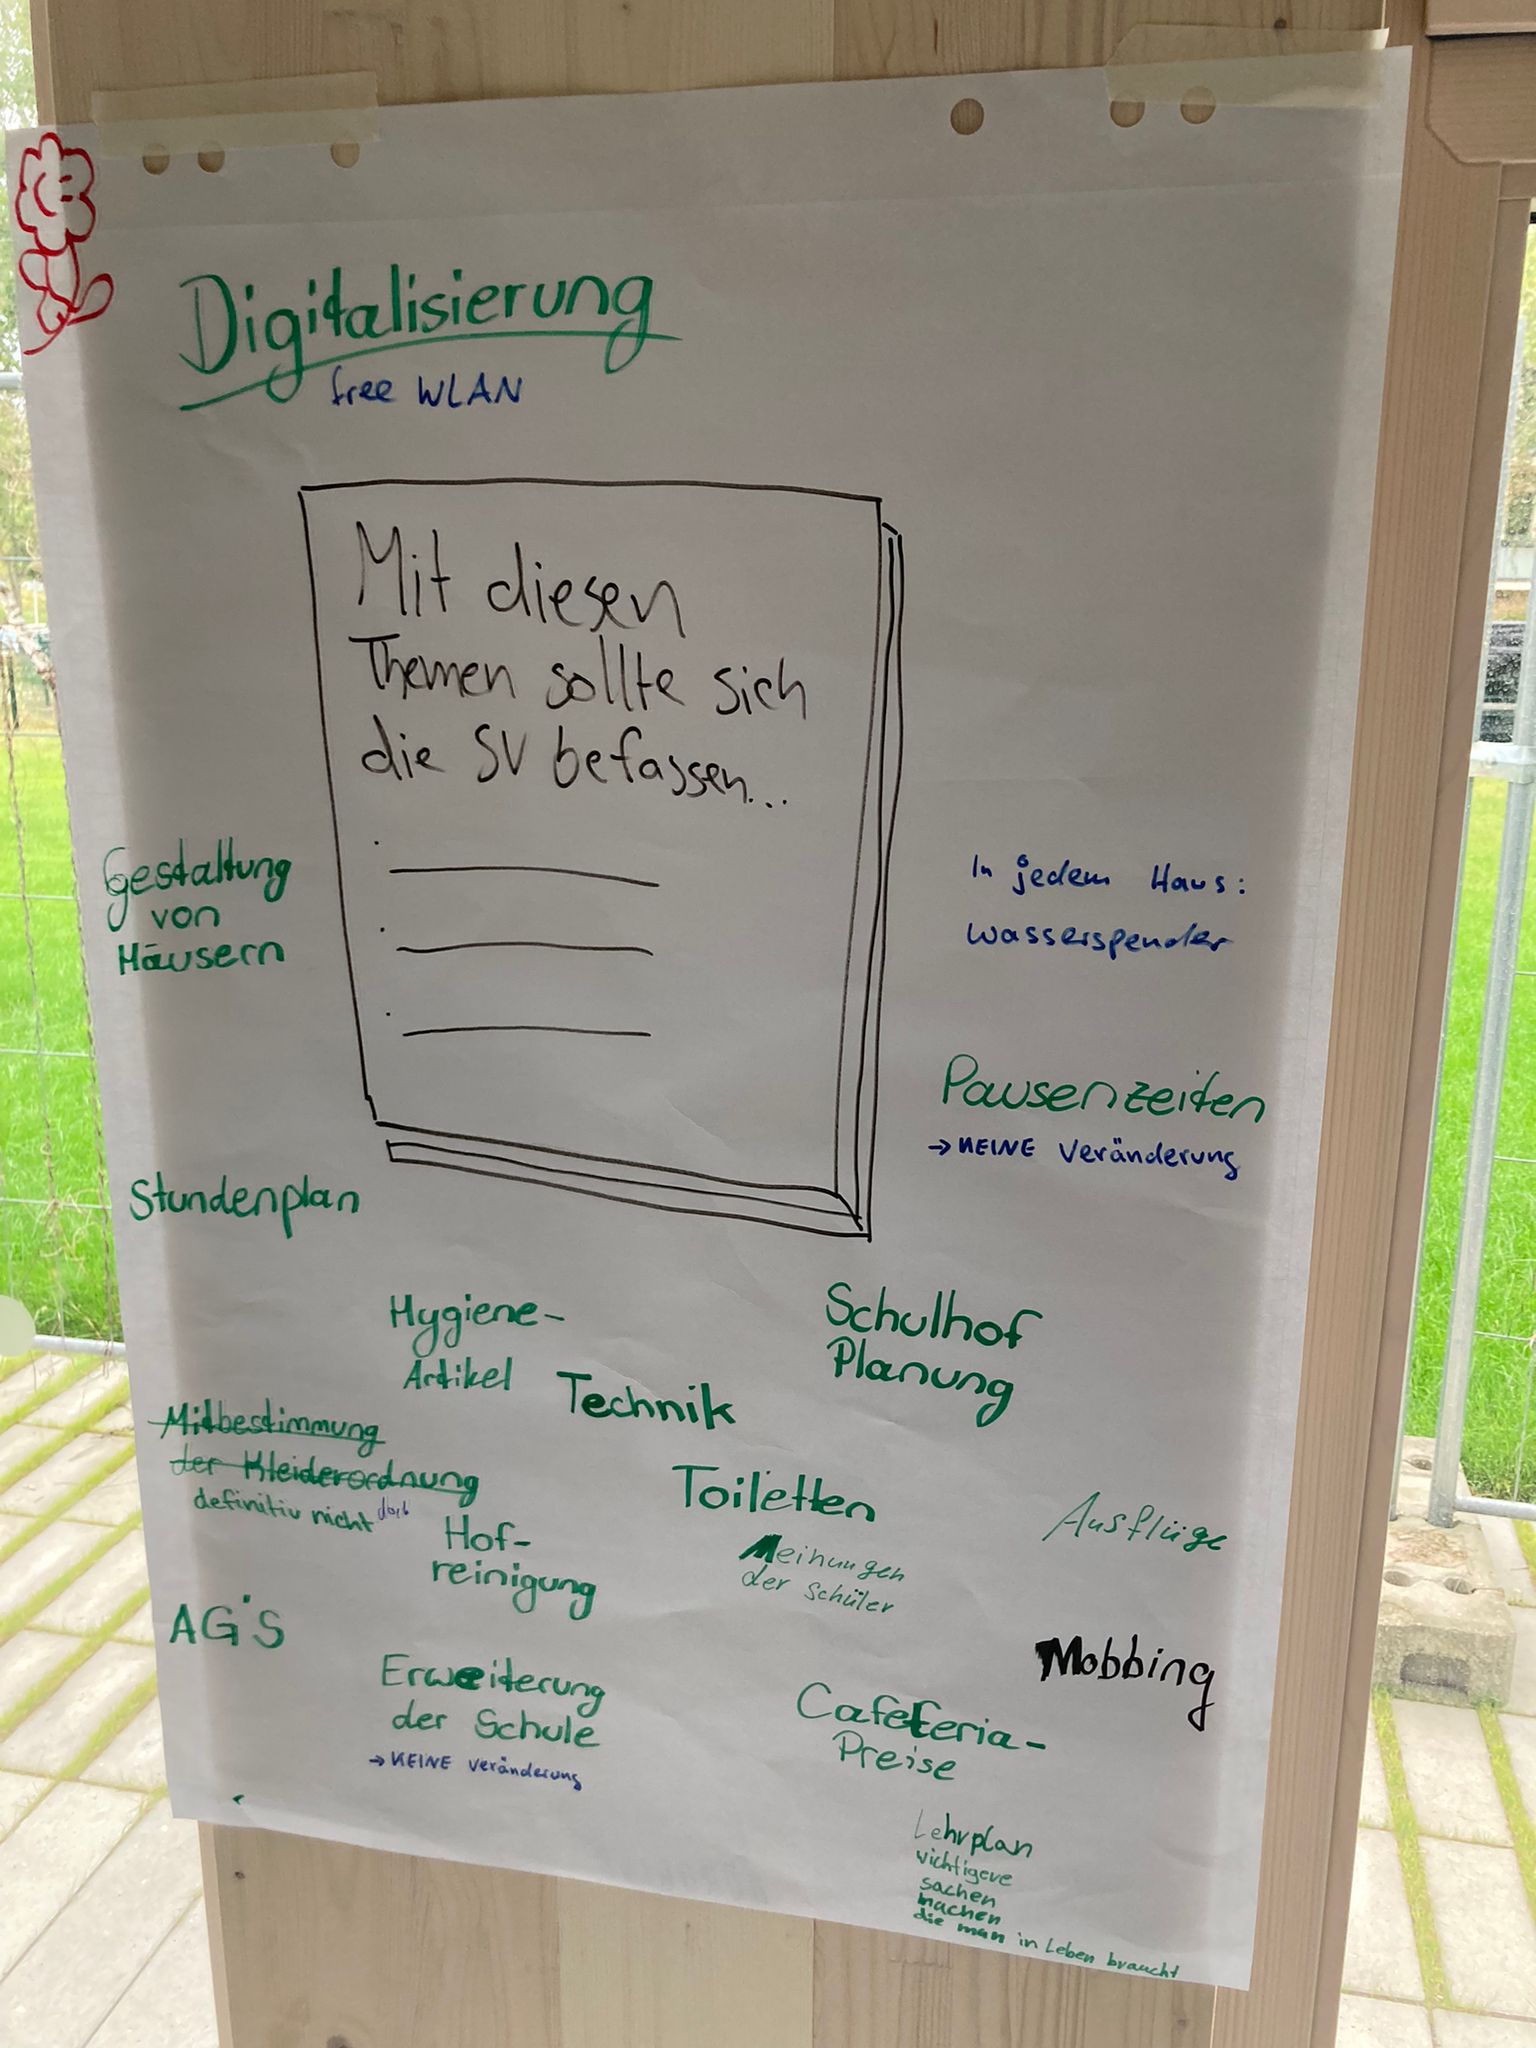 Digitalisierung
free WLAN
Mit diesen
Themen sollte sich
die SV befassen...
Gestaltung
von
Häusern
In jedem Haus:
Wasserspender
Pausenzeiten
→ KEINE Veränderung
Stundenplan
Hygiene-
Artikel
Schulhof
Planung
Technik
Mitbestimmung
der Kleiderordnung
definitiv nicht doch
Toiletten
Meinungen
der Schüler
Ausflüge
Hof-
reinigung
AG'S
Mobbing
Erweiterung
der Schule
→ KEINE Veränderung
Cafeteria-
Preise
Lehrplan
wichtigere
sachen
machen
die man in Leben braucht